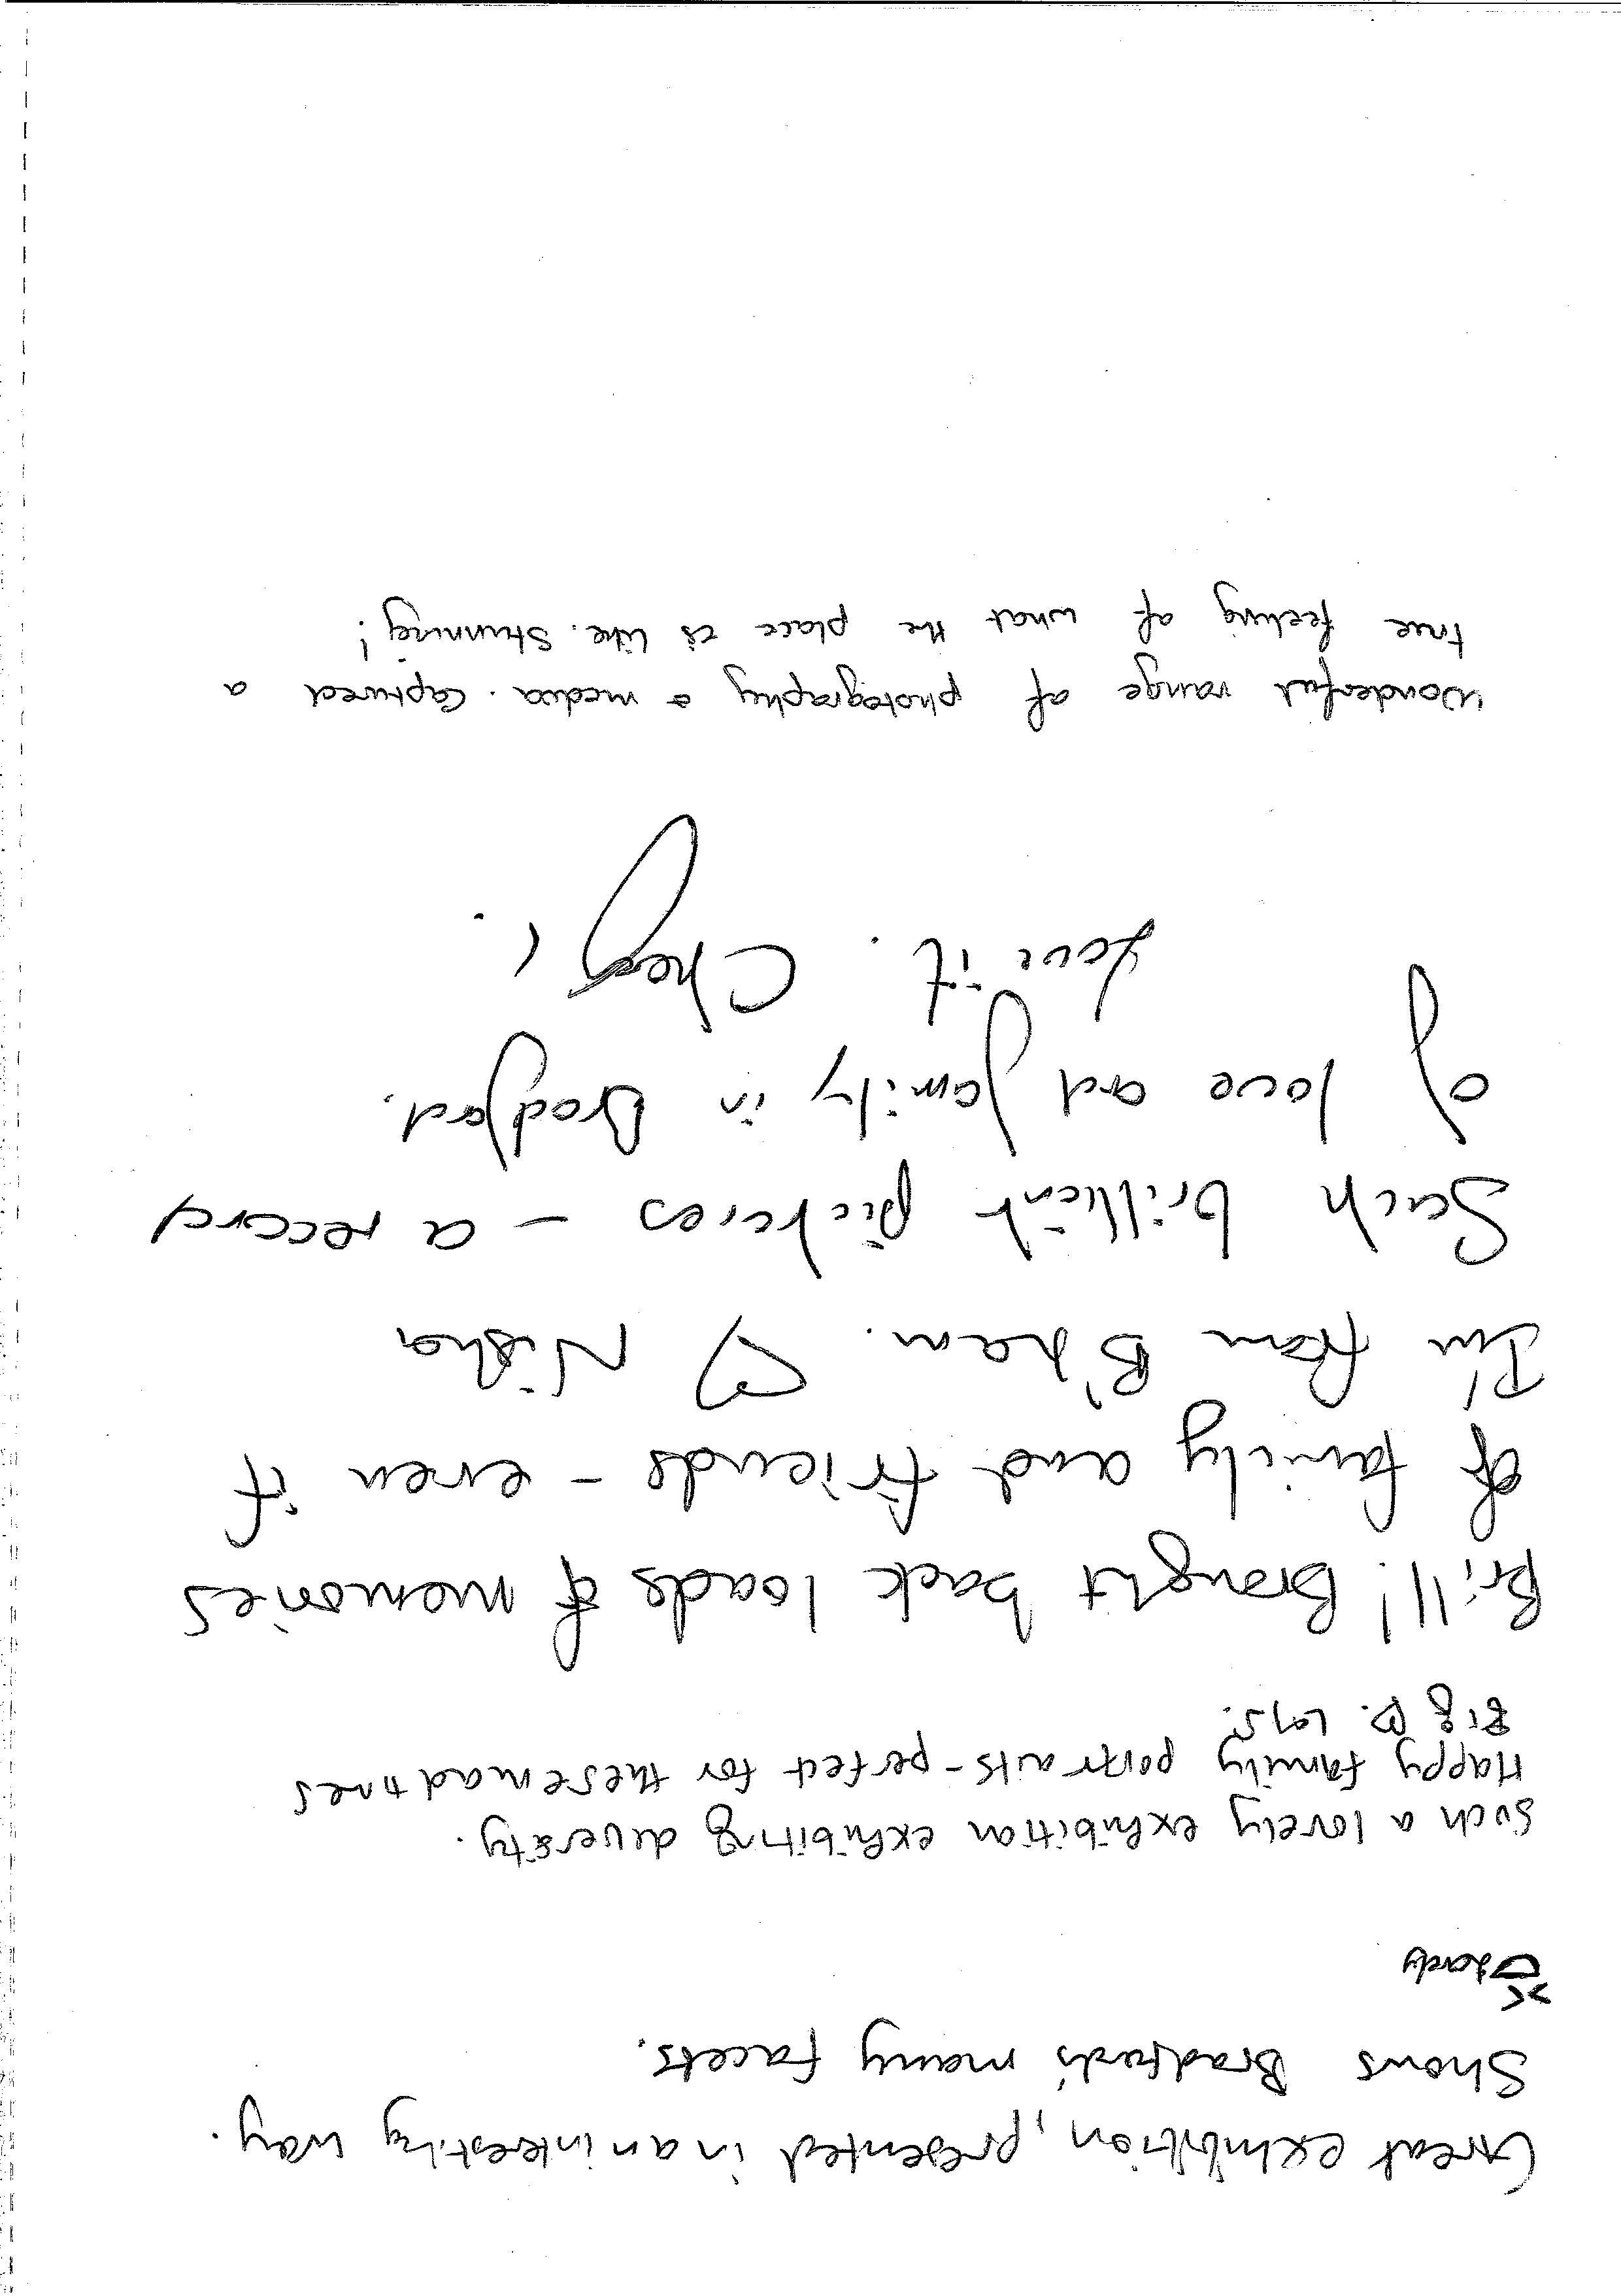 Great exhibition, presented in an interesting way.
Shows Bradford's many facets.
Such a lovely exhibition exhibiting diversity.
Happy family portraits - perfect for these mad times
Brill! Brought back loads of memories
of family and friends - even if
I'm from B'ham. ♡ Nisha
Such brillient pictures - a record
of love and family in Bradford.
Love it.
Wonderful range of photography & media. Captured a
true feeling of what the place is like. Stunning!